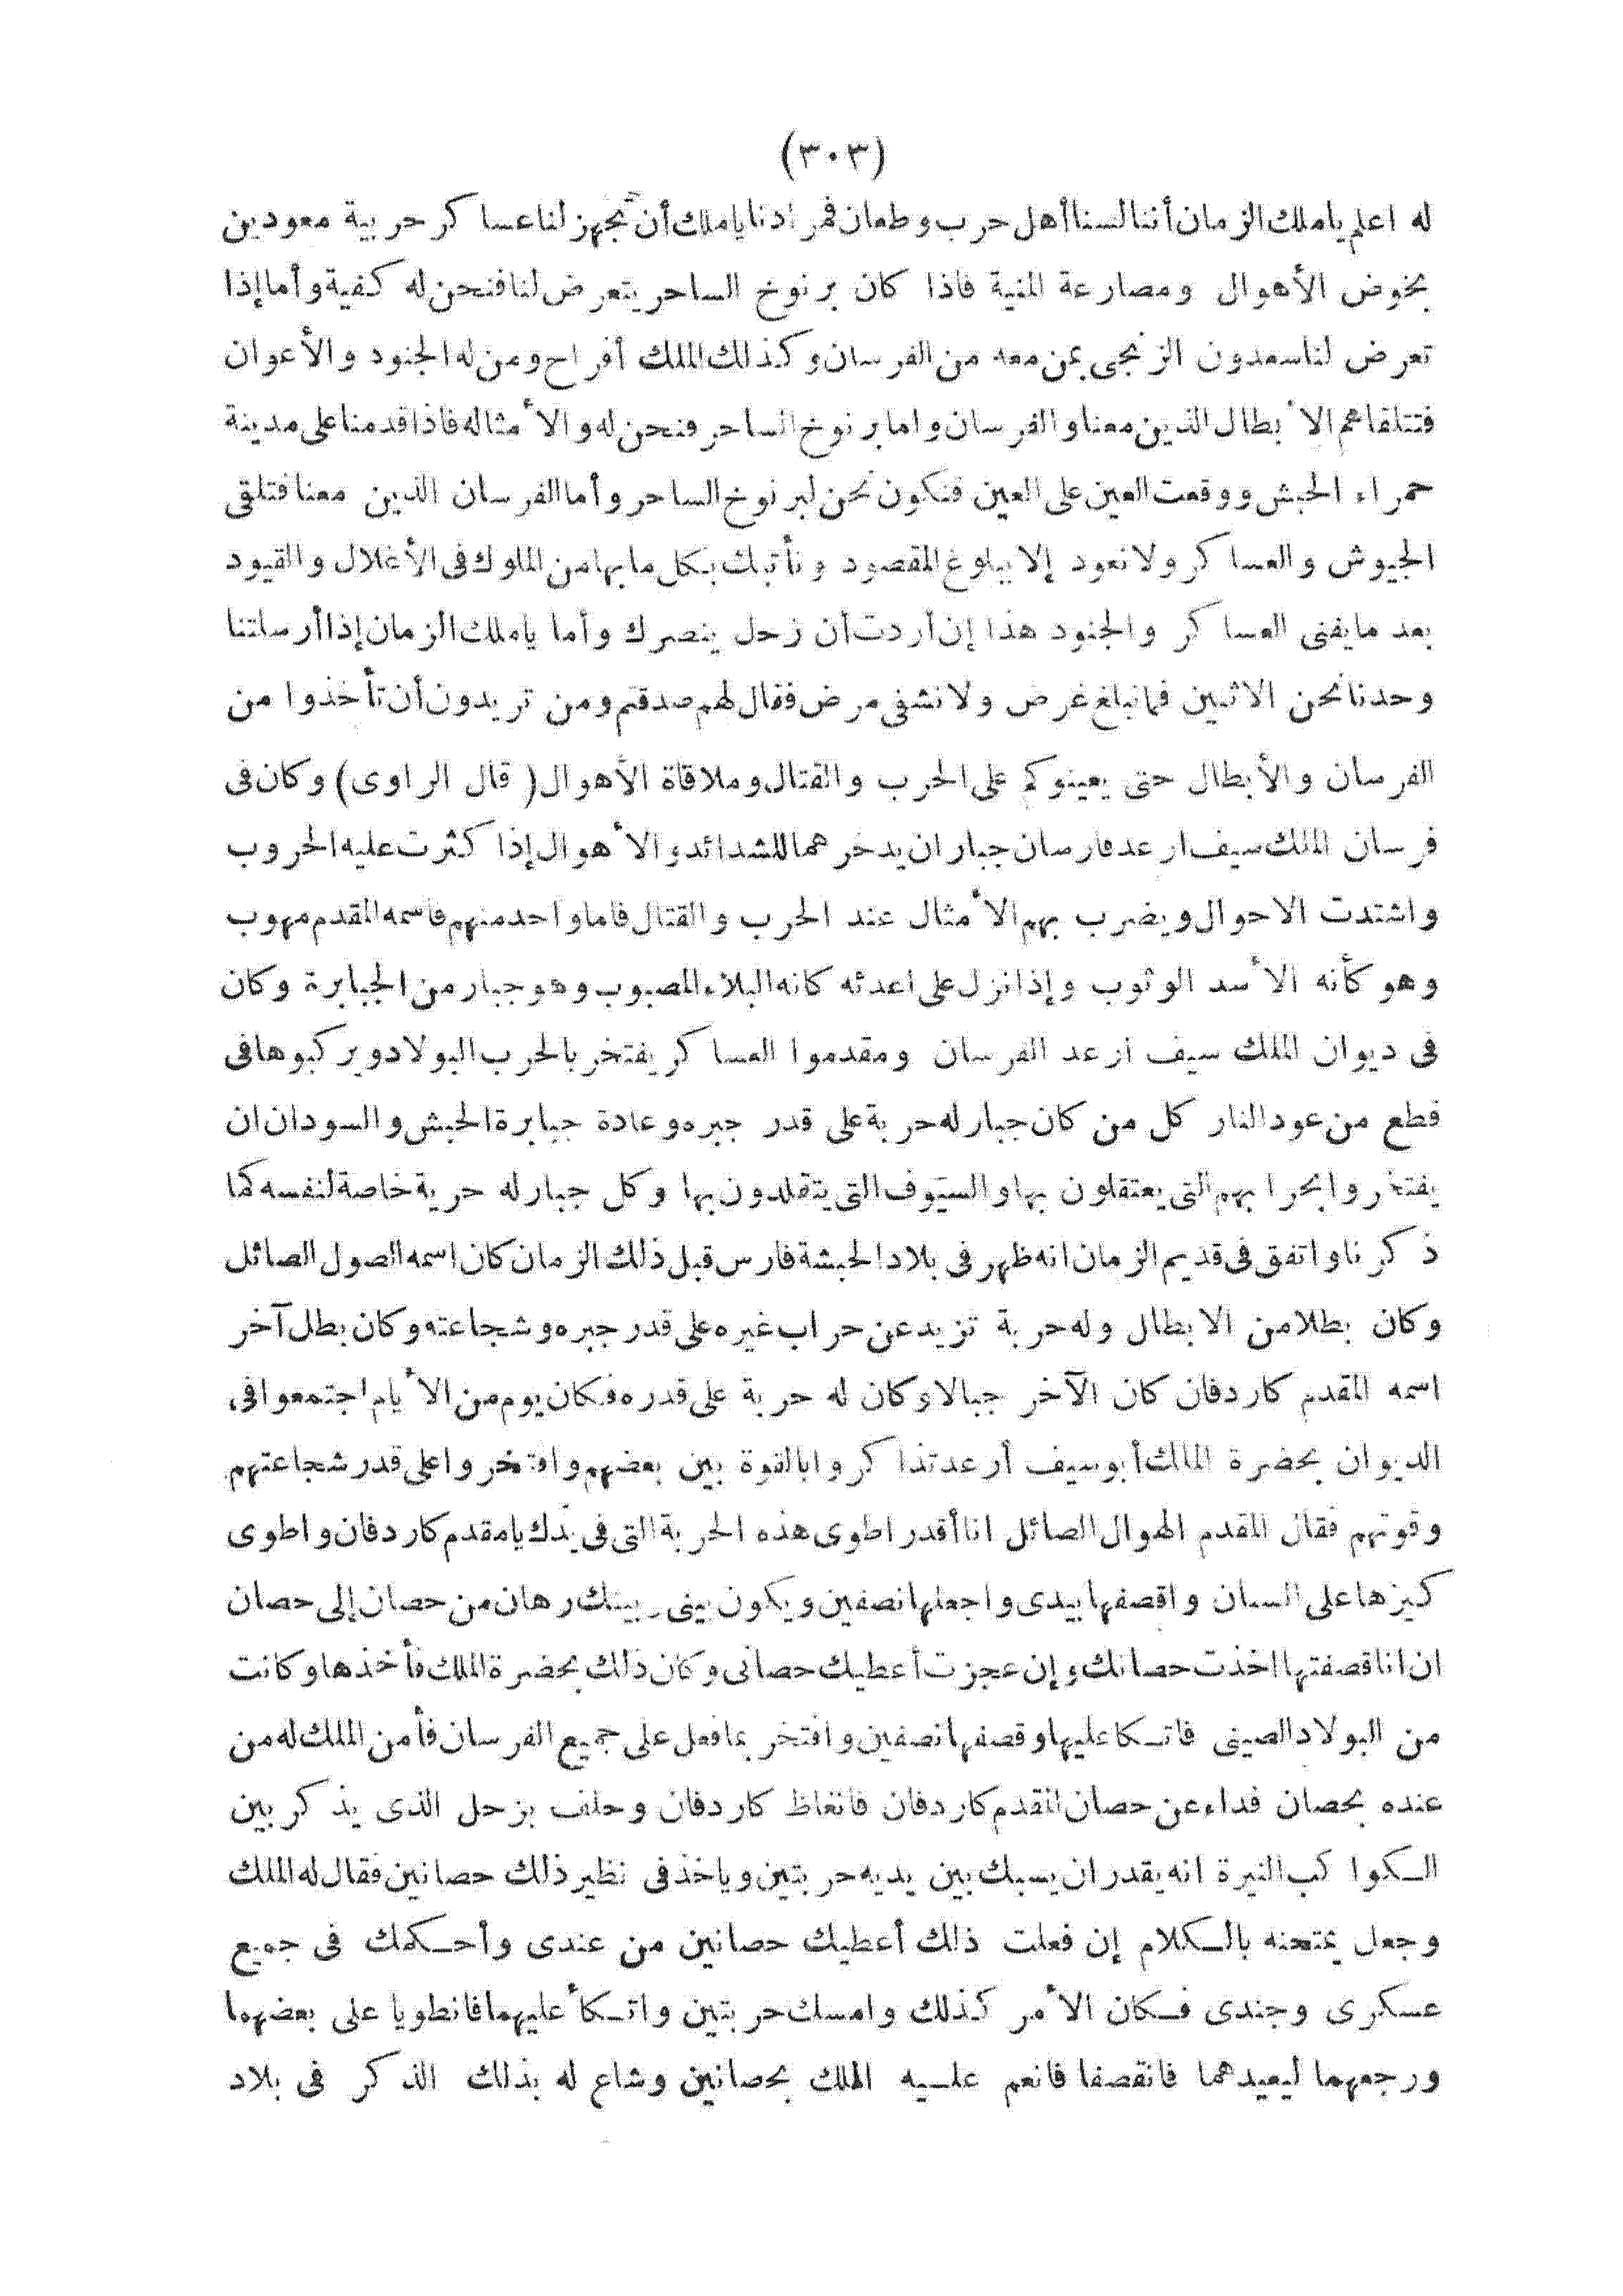 (٣٠٣)
له اعلم ياملك الزمان أننا لسنا أهل حرب وطعان فمرادنا ياملك أن تجهز لنا عساكر حربية معودين
بخوض الأهوال ومصارعة المنية فاذا كان برنوخ الساحر يتعرض لنا فنحن له كفية وأما إذا
تعرض لنا سعدون الزنجى بمن معه من الفرسان وكذلك الملك أفراح ومن له الجنود والأعوان
فتتلقاهم الأبطال الذين معنا والفرسان واما برنوخ الساحر فنحن له والأمثاله فاذا قدمنا على مدينة
حمراء الحبش ووقعت العين على العين فنكون نحن لبرنوخ الساحر وأما الفرسان الذين معنا فتلقى
الجيوش والعساكر ولا نعود إلا ببلوغ المقصود ونأتيك بكل ما بها من الملوك فى الأغلال والقيود
بعد ما يفنى العساكر والجنود هذا إن أردت أن زحل ينصرك وأما ياملك الزمان إذا أرسلتنا
وحدنا نحن الاثنين فما نبلغ غرض ولا نشفى مرض فقال لهم صدقتم ومن تريدون أن تأخذوا من
الفرسان والأبطال حتى يعينوكم على الحرب والقتال وملاقاة الأهوال ( قال الراوى ) وكان فى
فرسان الملك سيف ارعد فارسان جباران يدخرهما للشدائد والأهوال إذا كثرت عليه الحروب
واشتدت الاحوال ويضرب بهم الأمثال عند الحرب والقتال فاما واحد منهم فاسمه المقدم مهوب
وهو كأنه الأسد الوثوب وإذا نزل على اعدئه كانه البلاء المصبوب وهو جبار من الجبابرة وكان
فى ديوان الملك سيف أرعد الفرسان ومقدموا العساكر يفتخر بالحرب البولاد ويركبوها فى
قطع من عود النار كل من كان جبار له حربة على قدر جبره وعادة جبابرة الحبش والسودان ان
يفتخروا بحرابهم التى يعتقلون بها والسيوف التى يتقلدون بها وكل جبار له حربة خاصة لنفسه كما
ذكرنا واتفق فى قديم الزمان انه ظهر فى بلاد الحبشة فارس قبل ذلك الزمان كان اسمه الصول الصائل
وكان بطلا من الابطال وله حربة تزيد عن حراب غيره على قدر جبره وشجاعته وكان بطل آخر
اسمه المقدم كاردفان كان الآخر جبالا وكان له حربة على قدره فكان يوم من الأيام اجتمعوا فى
الديوان بحضرة الملك أبو سيف أرعد تذاكروا بالقوة بين بعضهم وافتخروا على قدر شجاعتهم
وقوتهم فقال المقدم الهوال الصائل انا أقدر اطوى هذه الحربة التى فى يدك يا مقدم كاردفان واطوى
كيزها على السنان واقصفها بيدى واجعلها نصفين ويكون بينى وبينك رهان من حصان إلى حصان
ان انا قصفتها اخذت حصانك وإن عجزت أعطيك حصانى وكان ذلك بحضرة الملك فأخذها وكانت
من البولاد الصينى فاتكا عليها وقصفها نصفين وافتخر بما فعل على جميع الفرسان فأمن الملك له من
عنده بحصان فداء عن حصان المقدم كاردفان فانغاظ كاردفان وحلف بزحل الذى يذكر بين
الكواكب النيرة انه يقدر ان يسبك بين يديه حربتين وياخذ فى نظير ذلك حصانين فقال له الملك
وجعل يمتحنه بالكلام إن فعلت ذلك أعطيك حصانين من عندى وأحكمك فى جميع
عسكرى وجندى فكان الأمر كذلك وامسك حربتين واتكأ عليهما فانطويا على بعضهما
ورجعهما ليعيدهما فانقصفا فانعم عليه الملك بحصانين وشاع له بذلك الذكر فى بلاد